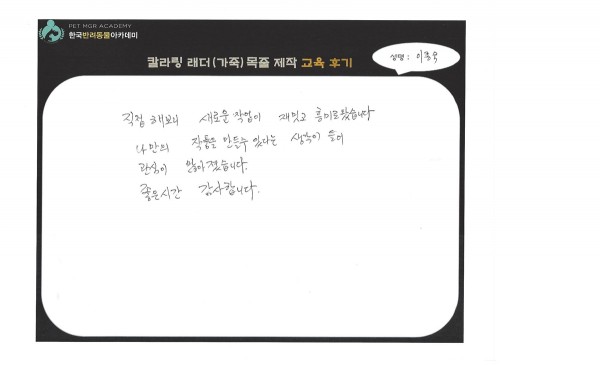 PET MGR ACADEMY
한국반려동물아카데미
칼라링 래더(가죽) 목줄 제작 교육 후기
성명 : 이종욱
직접 해보니 새로운 작업이 재밋고 흥미로웠습니다
나만의 작품을 만들수 있다는 생각이 들어
관심이 많아졌습니다.
좋은시간 감사합니다.